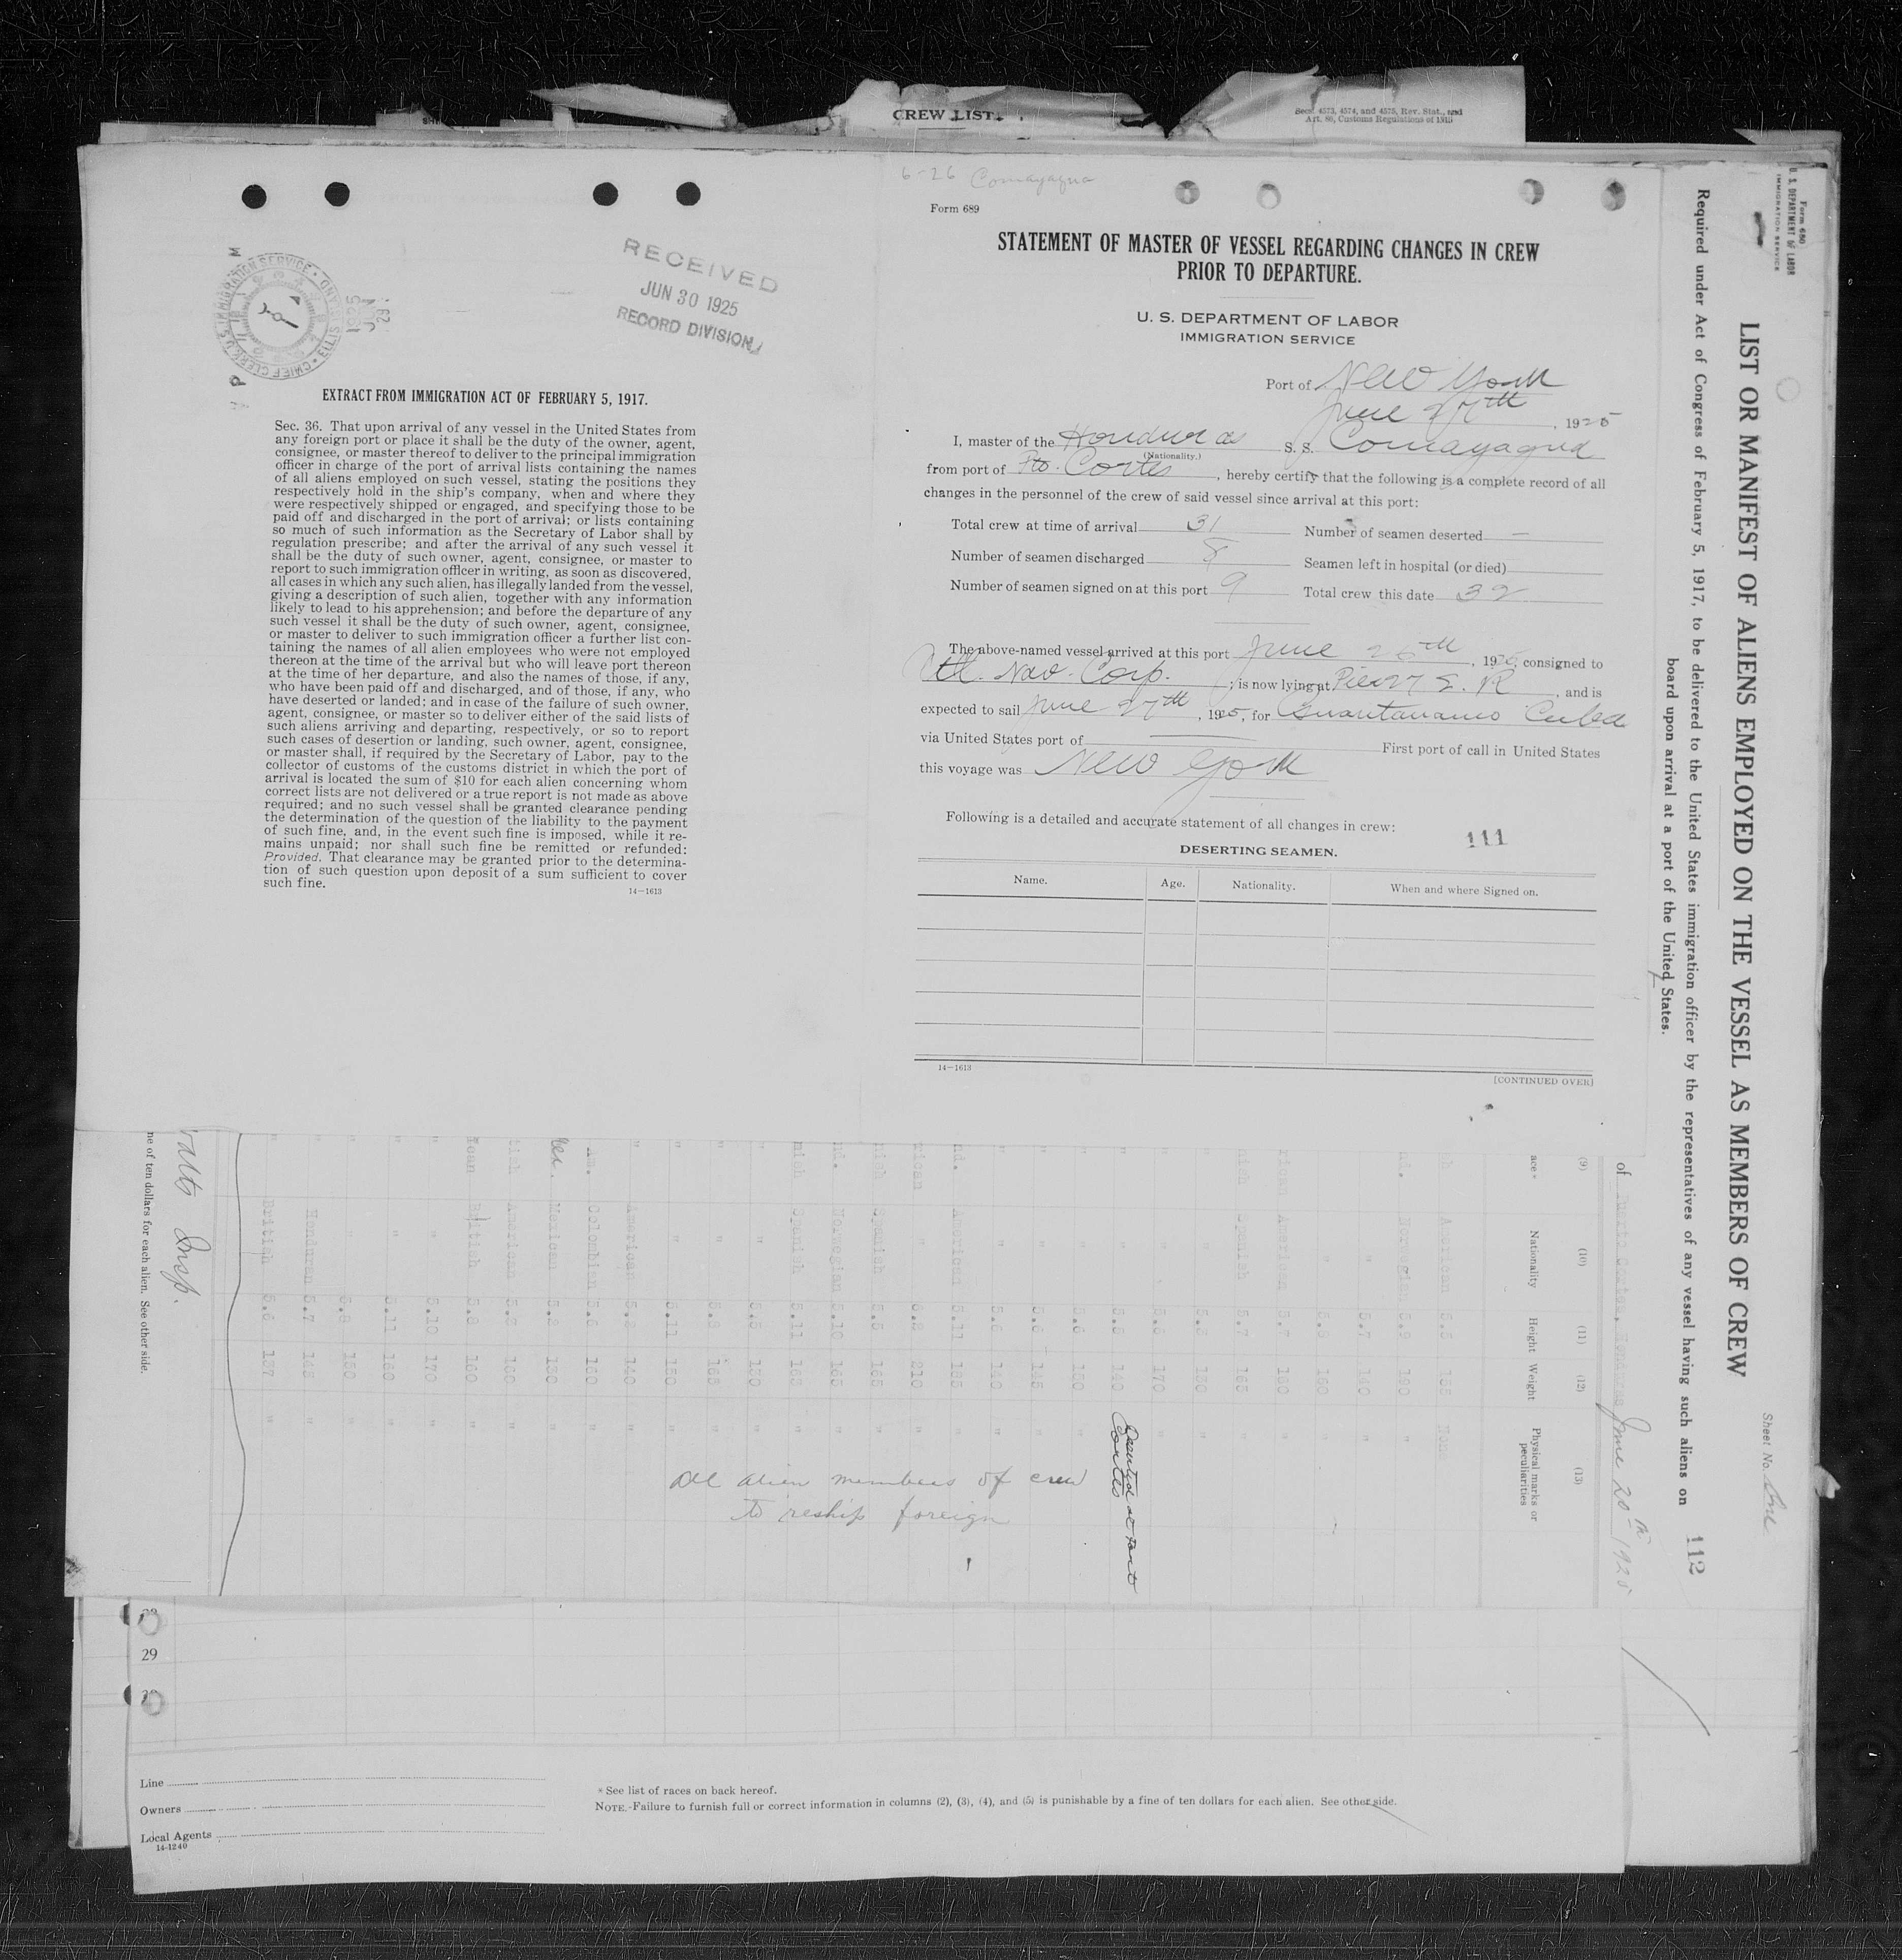 CREW LIST
Secs. 4573, 4574, and 4575, Rev. Stat., and
Art. 86, Customs Regulations of 1915
RECEIVED
JUN 30 1925
RECORD DIVISION
CHIEF CLERK U.S. IMMIGRATION SERVICE • ELLIS ISLAND
1925
JUN
29
EXTRACT FROM IMMIGRATION ACT OF FEBRUARY 5, 1917.
Sec. 36. That upon arrival of any vessel in the United States from
any foreign port or place it shall be the duty of the owner, agent,
consignee, or master thereof to deliver to the principal immigration
officer in charge of the port of arrival lists containing the names
of all aliens employed on such vessel, stating the positions they
respectively hold in the ship's company, when and where they
were respectively shipped or engaged, and specifying those to be
paid off and discharged in the port of arrival; or lists containing
so much of such information as the Secretary of Labor shall by
regulation prescribe; and after the arrival of any such vessel it
shall be the duty of such owner, agent, consignee, or master to
report to such immigration officer in writing, as soon as discovered,
all cases in which any such alien, has illegally landed from the vessel,
giving a description of such alien, together with any information
likely to lead to his apprehension; and before the departure of any
such vessel it shall be the duty of such owner, agent, consignee,
or master to deliver to such immigration officer a further list con-
taining the names of all alien employees who were not employed
thereon at the time of the arrival but who will leave port thereon
at the time of her departure, and also the names of those, if any,
who have been paid off and discharged, and of those, if any, who
have deserted or landed; and in case of the failure of such owner,
agent, consignee, or master so to deliver either of the said lists of
such aliens arriving and departing, respectively, or so to report
such cases of desertion or landing, such owner, agent, consignee,
or master shall, if required by the Secretary of Labor, pay to the
collector of customs of the customs district in which the port of
arrival is located the sum of $10 for each alien concerning whom
correct lists are not delivered or a true report is not made as above
required; and no such vessel shall be granted clearance pending
the determination of the question of the liability to the payment
of such fine, and, in the event such fine is imposed, while it re-
mains unpaid; nor shall such fine be remitted or refunded:
Provided, That clearance may be granted prior to the determina-
tion of such question upon deposit of a sum sufficient to cover
such fine.
14—1613
6-26 Comayagua
Form 689
STATEMENT OF MASTER OF VESSEL REGARDING CHANGES IN CREW
PRIOR TO DEPARTURE.
U. S. DEPARTMENT OF LABOR
IMMIGRATION SERVICE
Port of New York
June 27th, 1925
I, master of the Honduras S. S. Comayagua
(Nationality.)
from port of Pto. Cortes, hereby certify that the following is a complete record of all
changes in the personnel of the crew of said vessel since arrival at this port:
Total crew at time of arrival 31 Number of seamen deserted —
Number of seamen discharged 8 Seamen left in hospital (or died)
Number of seamen signed on at this port 9 Total crew this date 32
The above-named vessel arrived at this port June 26th, 1925, consigned to
Atl. Nav. Corp.; is now lying at Pier 27 E. R, and is
expected to sail June 27th, 1925, for Guantanamo Cuba
via United States port of — First port of call in United States
this voyage was New York
Following is a detailed and accurate statement of all changes in crew:
111
DESERTING SEAMEN.
Name. Age. Nationality. When and where Signed on.
14—1613
[CONTINUED OVER]
Form 680
U. S. DEPARTMENT OF LABOR
IMMIGRATION SERVICE
LIST OR MANIFEST OF ALIENS EMPLOYED ON THE VESSEL AS MEMBERS OF CREW
Sheet No. One
Required under Act of Congress of February 5, 1917, to be delivered to the United States immigration officer by the representatives of any vessel having such aliens on
board upon arrival at a port of the United States.
112
of Puerto Cortes, Honduras June 20th 1925
(9) (10) (11) (12) (13)
ace* Nationality Height Weight Physical marks or peculiarities
American 5.5 155 None
Norwegian 5.9 190 "
" 5.7 140 "
" 5.9 190 "
American 5.7 180 "
Spanish 5.7 165 "
" 5.5 130 "
" 5.8 170 "
" 5.5 140 Deserted at Port Cortes
" 5.6 150 "
" 5.6 145 "
" 5.6 140 "
American 5.11 185 "
" 6.2 210 "
Spanish 5.5 165 "
Norwegian 5.10 165 "
Spanish 5.11 165 "
" 5.5 130 "
" 5.9 165 "
" 5.11 150 "
American 5.8 140 "
Colombian 5.6 160 "
Mexican 5.8 130 "
American 5.8 160 "
British 5.8 160 "
" 5.10 170 "
" 5.11 160 "
" 5.8 150 "
Honduran 5.7 145 "
British 5.6 137 "
All alien members of crew
to reship foreign
Insp.
ne of ten dollars for each alien. See other side.
29
Line
Owners
Local Agents
14-1240
* See list of races on back hereof.
NOTE.-Failure to furnish full or correct information in columns (2), (3), (4), and (5) is punishable by a fine of ten dollars for each alien. See other side.